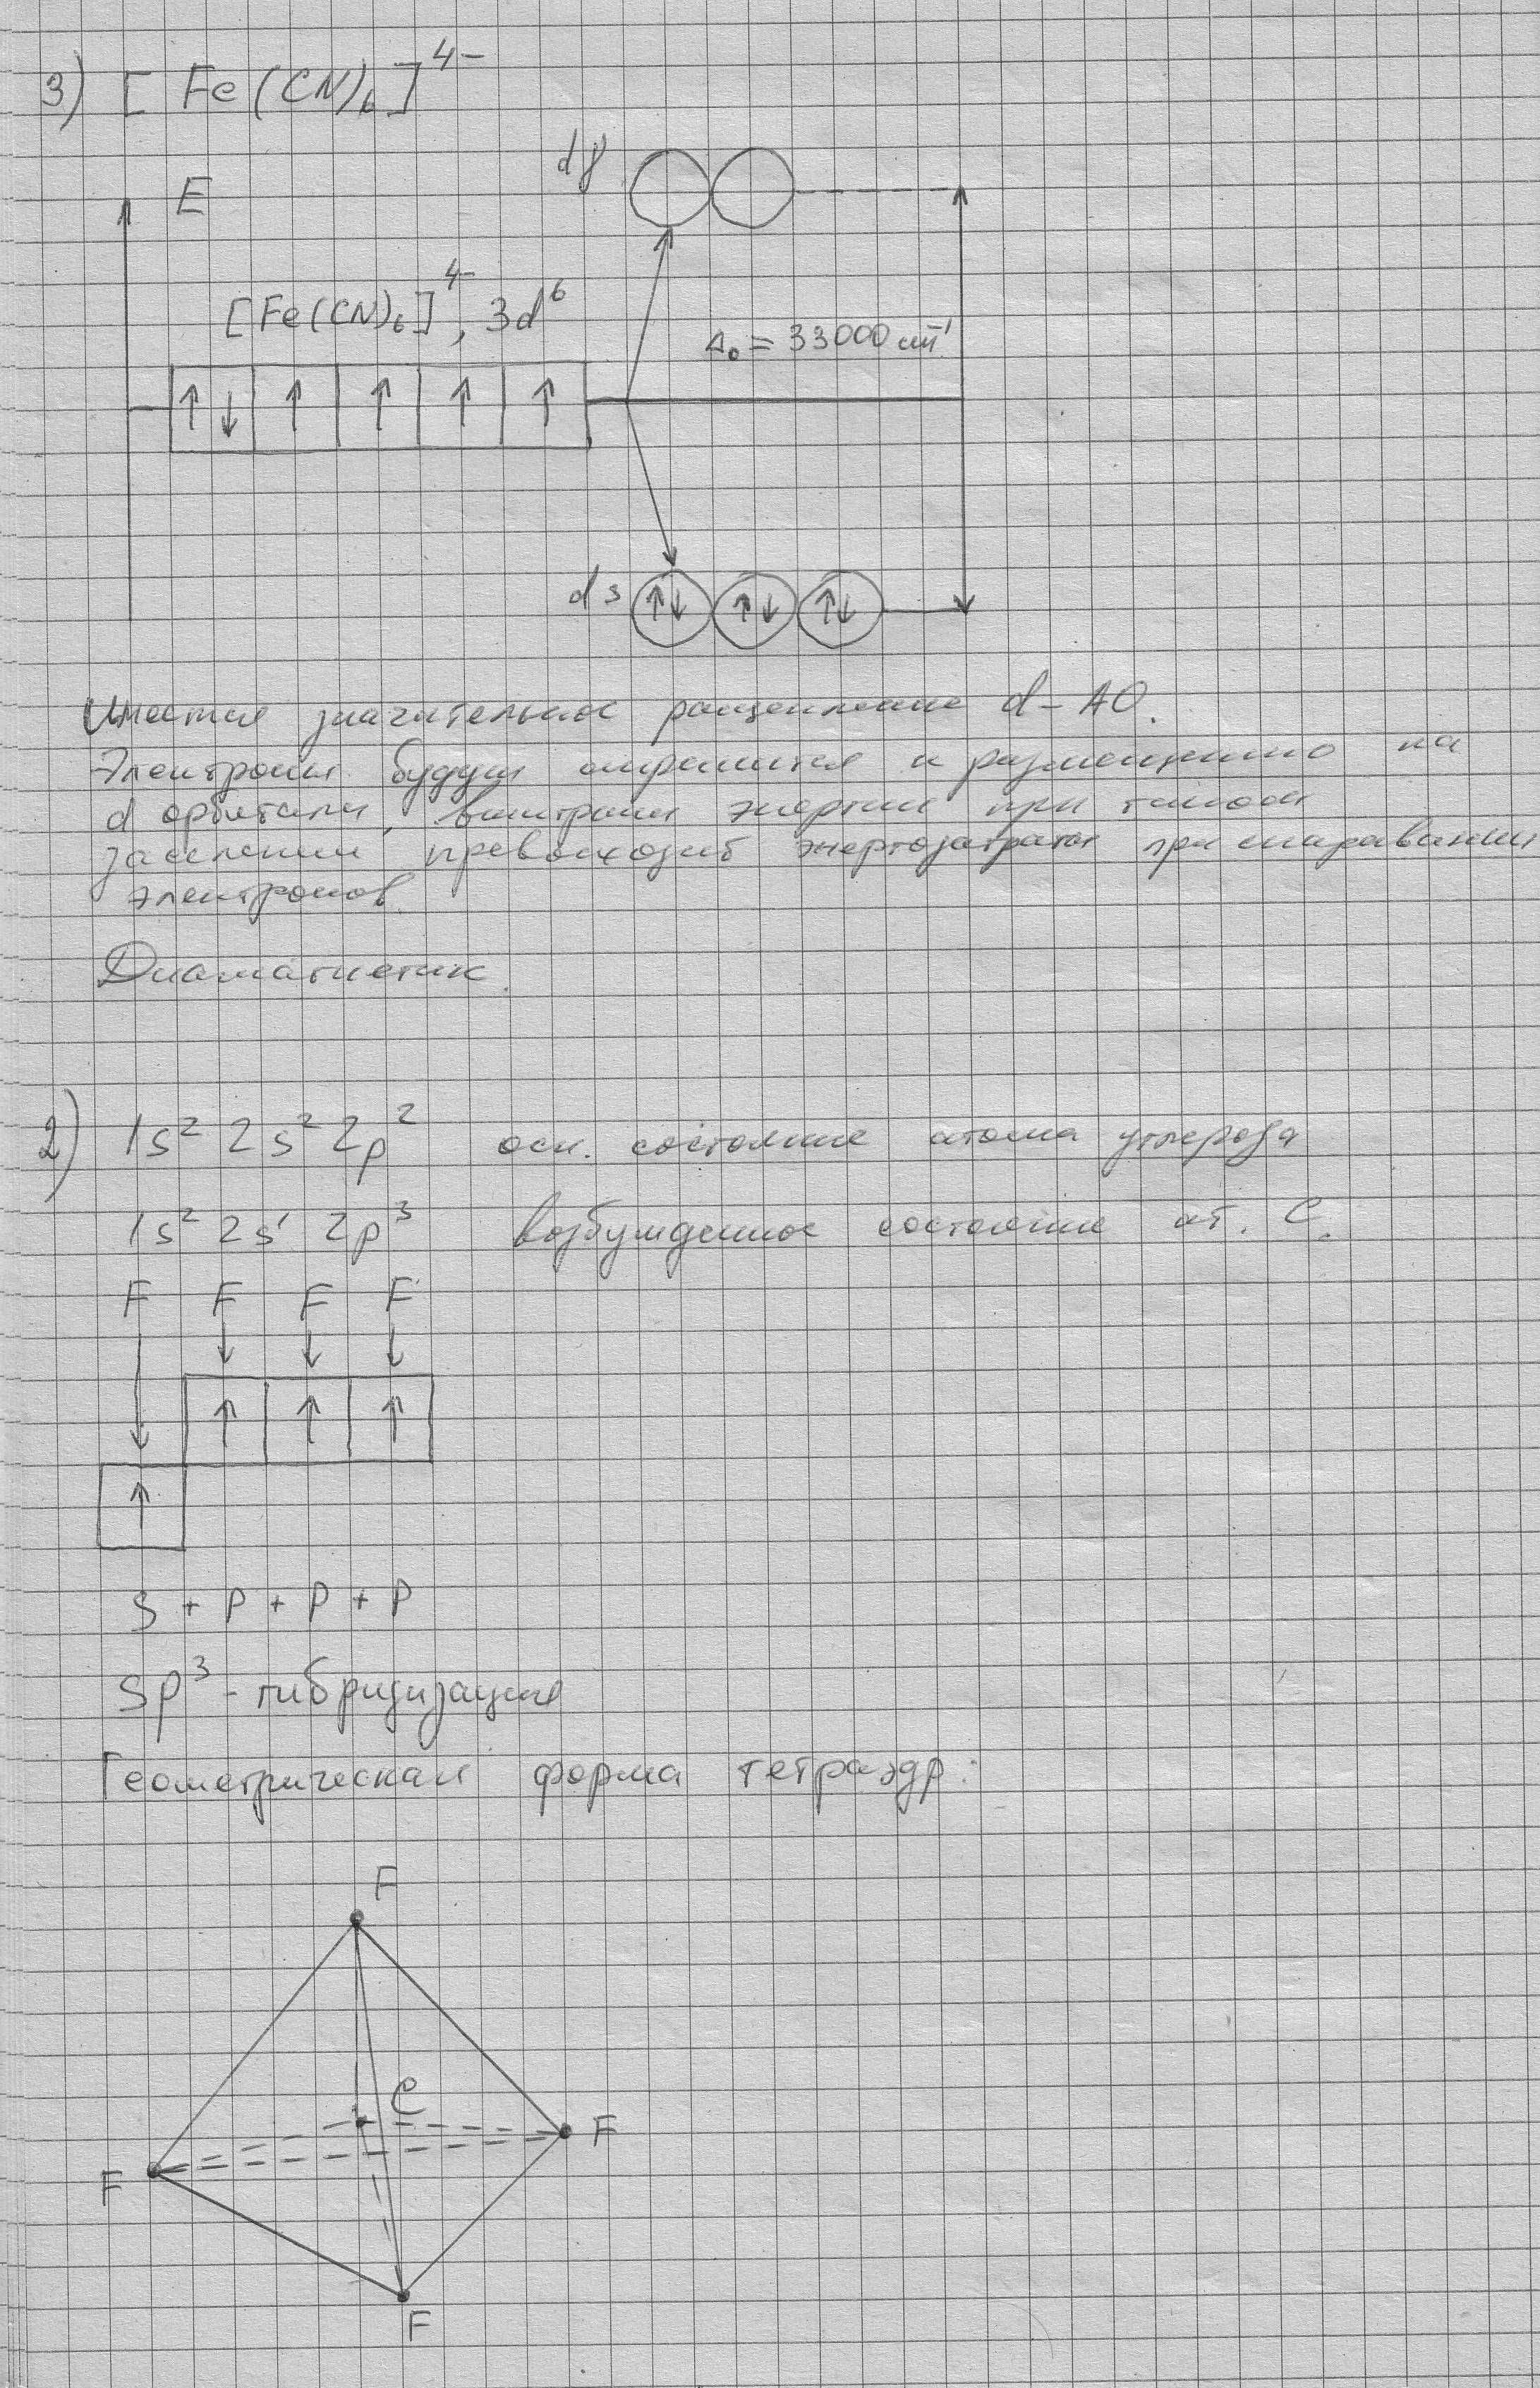 3) [Fe(CN)₆]⁴⁻
dγ
E
[Fe(CN)₆]⁴⁻, 3d⁶
Δ₀ = 33000 см⁻¹
↑↓ ↑ ↑ ↑ ↑
dε
↑↓ ↑↓ ↑↓
Имеется значительное расщепление d-АО.
Электроны будут стремиться к размещению на
d орбитали, выигрыш энергии при таком
заселении превосходит энергозатраты при спаривании
электронов.
Диамагнетик.
2) 1s² 2s² 2p² осн. состояние атома углерода
1s² 2s¹ 2p³ возбужденное состояние ат. C.
F F F F
↓ ↓ ↓ ↓
↑ ↑ ↑
↑
S + P + P + P
SP³-гибридизация
Геометрическая форма тетраэдр:
F
C
F
F
F